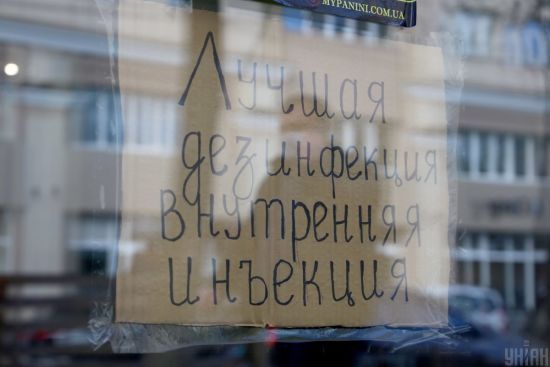 MYPANINI.COM.UA
Лучшая
дезинфекция
внутренняя
инъекция
УНІАН